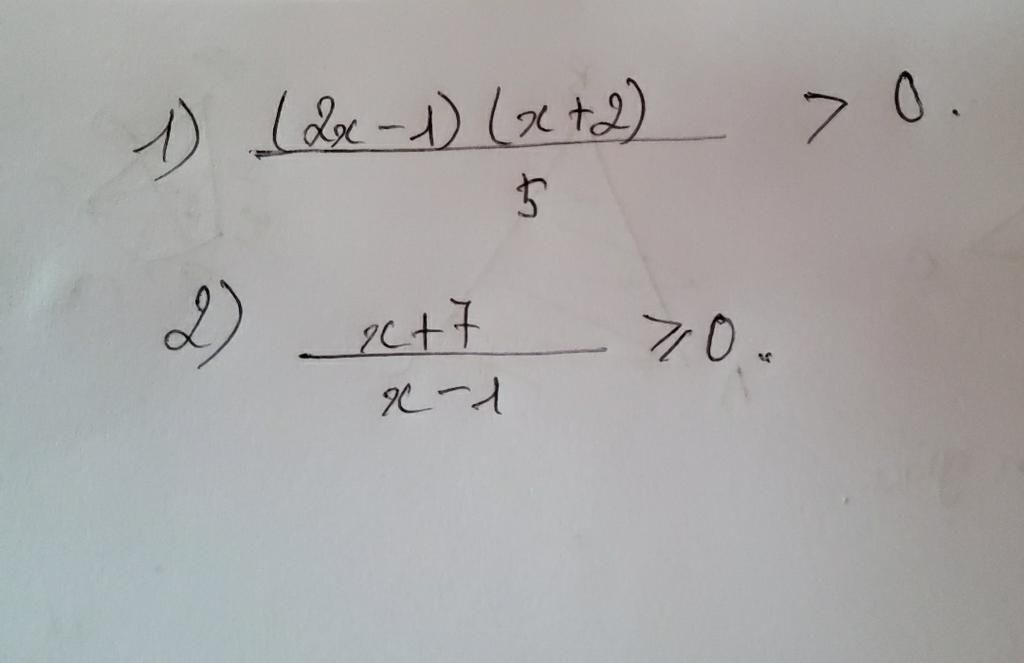 1) (2x-1)(x+2) / 5 > 0.
2) x+7 / x-1 ⩾ 0..